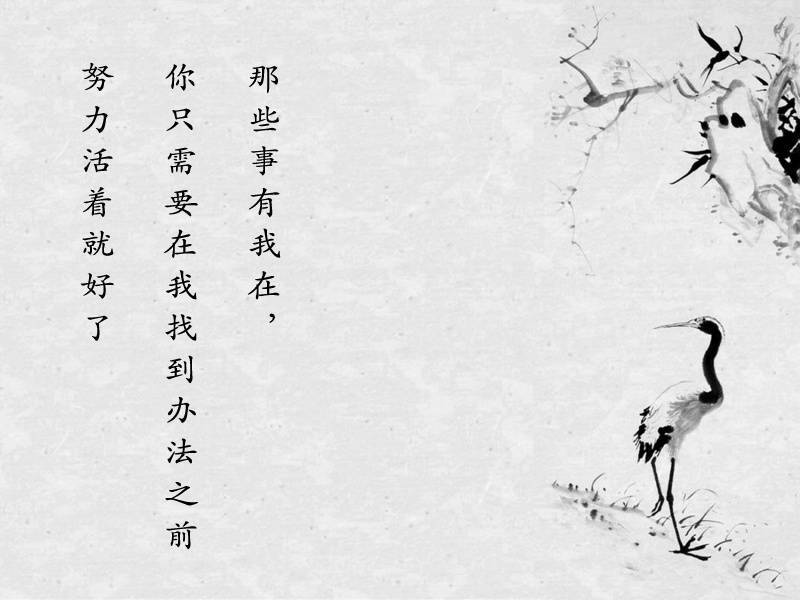 那些事有我在，
你只需要在我找到办法之前
努力活着就好了